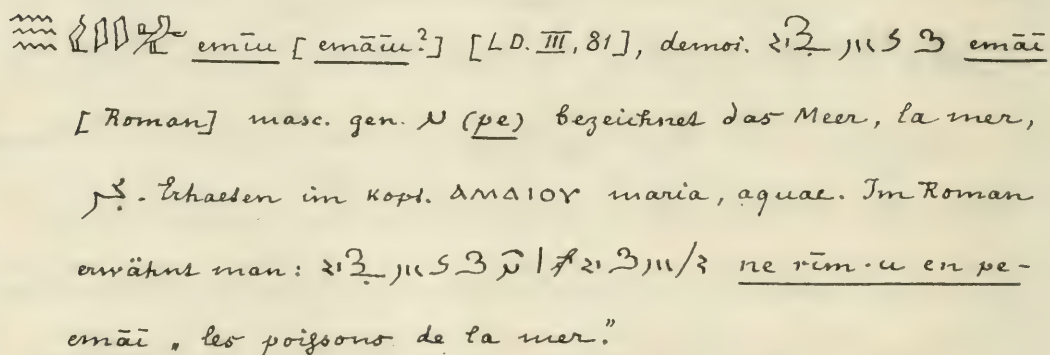 emīu [emāīu?] [LD. III, 81], demot. emāī
[Roman] masc. gen. (pe) bezeichnet das Meer, la mer,
بحر. Erhalten im Kopt. ⲀⲘⲀⲒⲞⲨ maria, aquae. Im Roman
erwähnt man: ne rīm·u en pe-
emāī „les poissons de la mer."